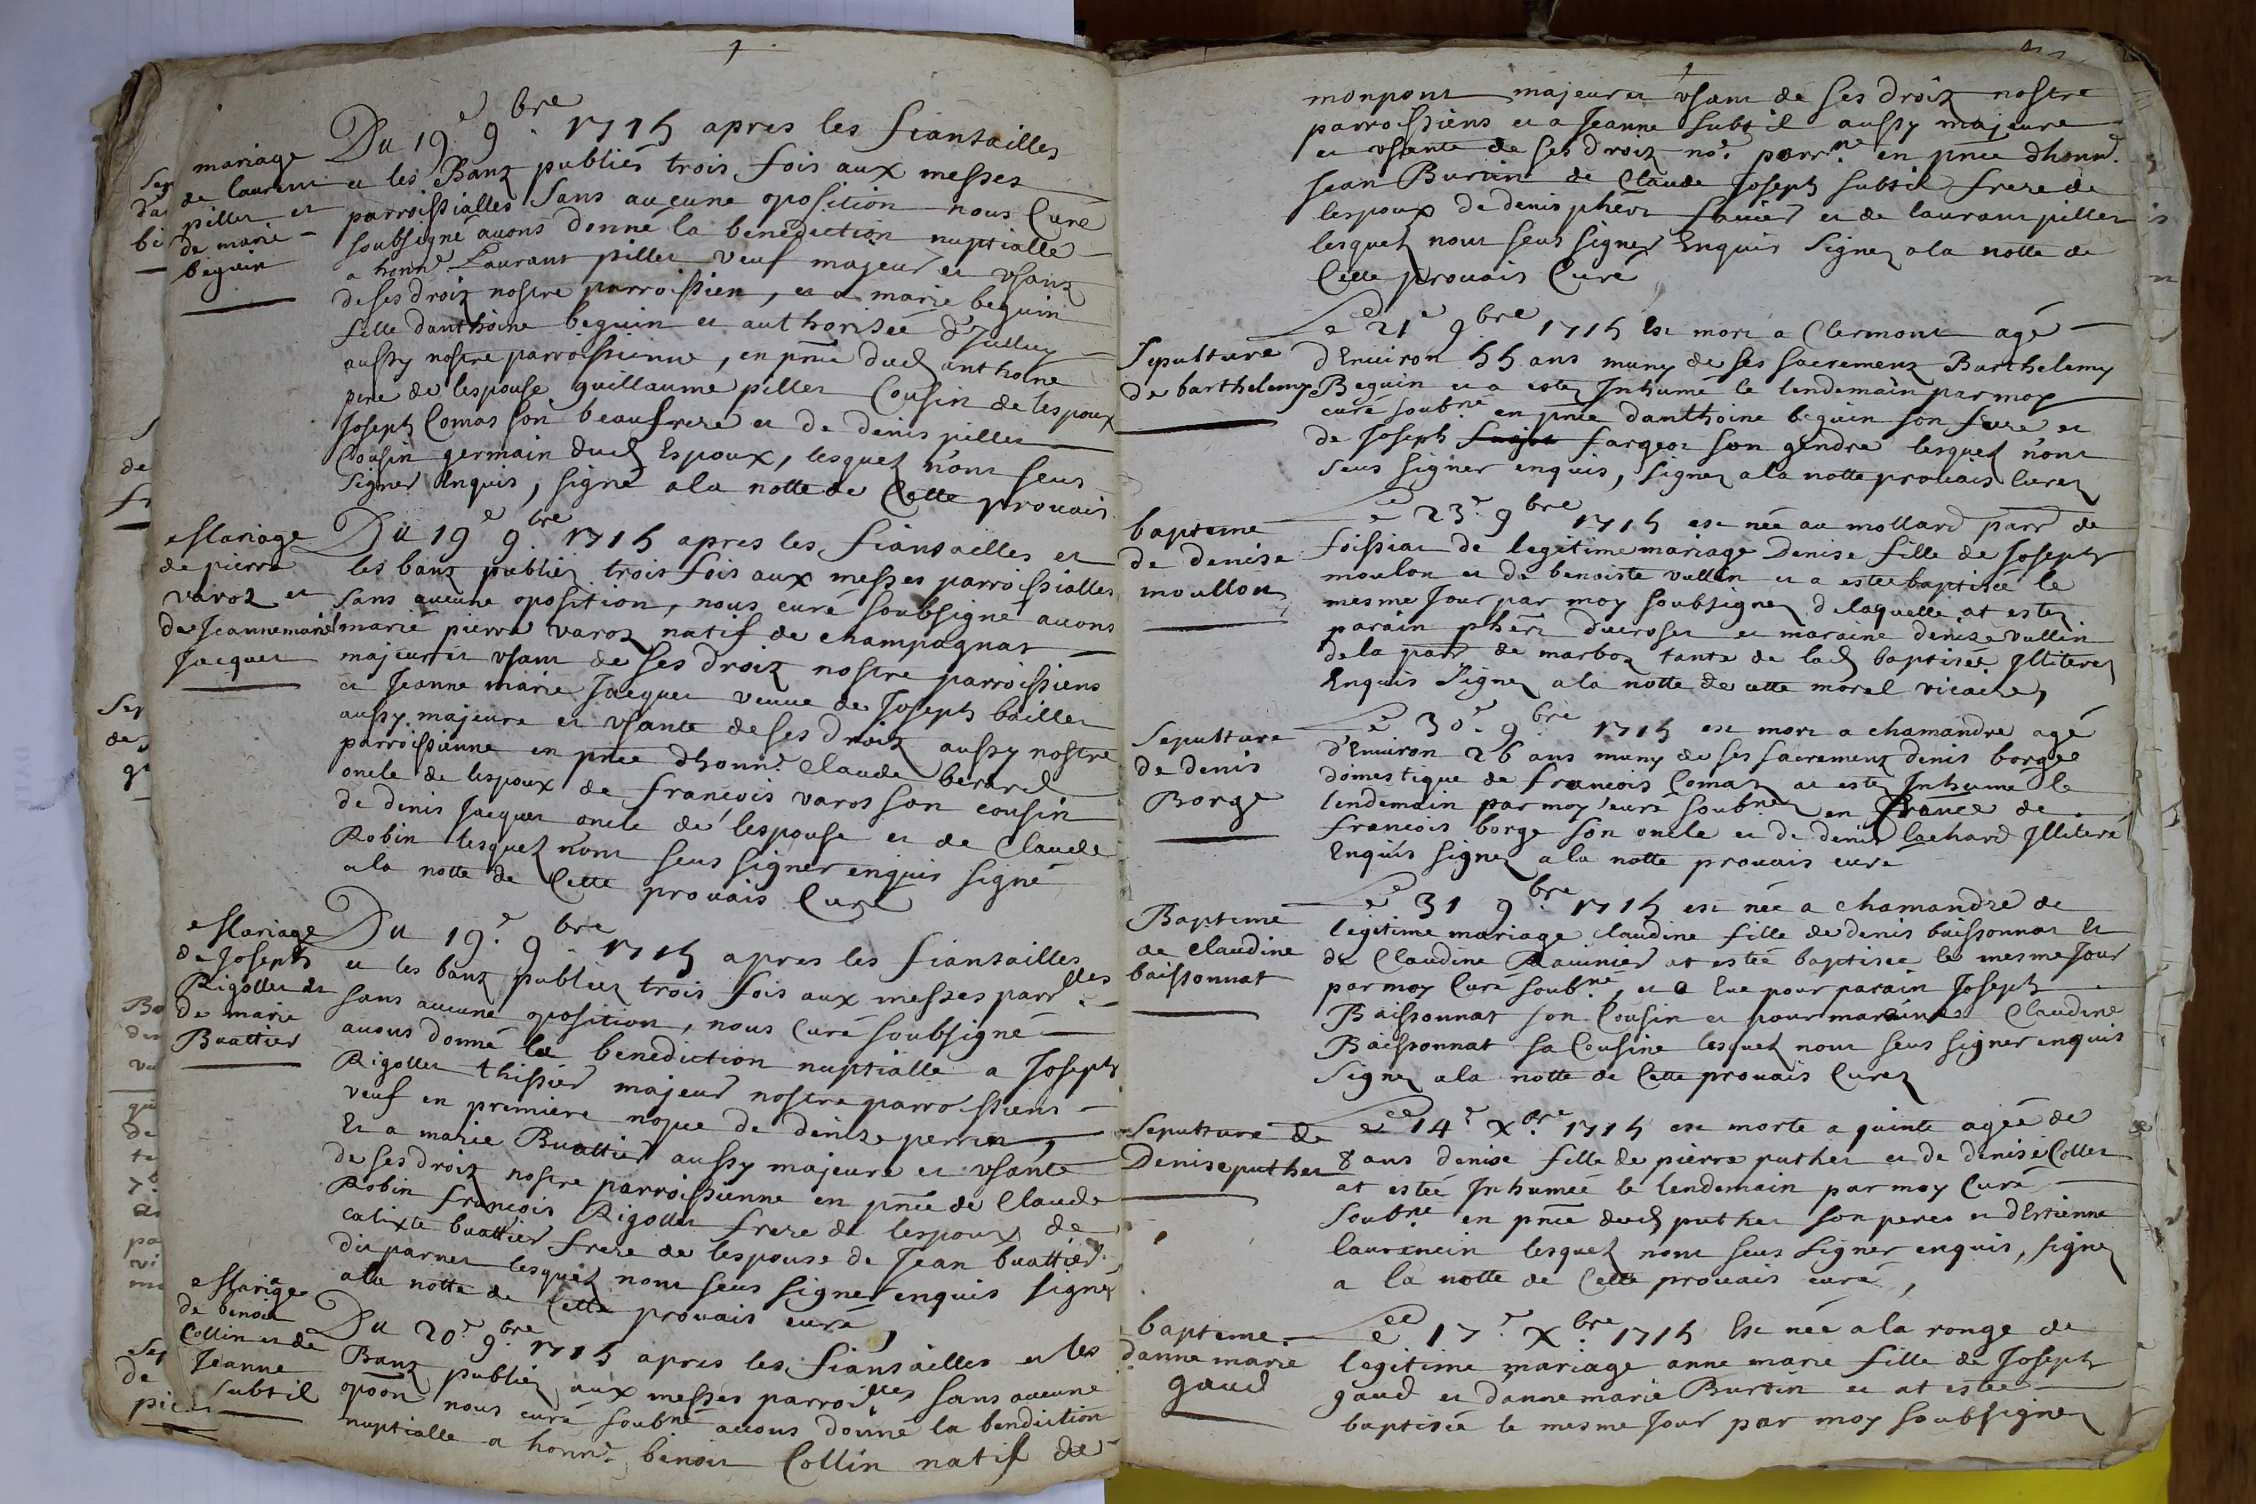 mariage
de laurent
piller et
de marie
beguin
Du 19e 9bre 1715 apres les fiansailles
et les Banz publiés trois fois aux messes
parroissialles sans aucune oposition nous Curé
soubsigné avons donné la benediction nuptialle
a honn.e Laurant piller veuf majeur et usant
de ses droiz nostre parroissien, et a marie beguin
fille danthoine beguin et authorisée
aussy nostre parroissienne, en pnce dud anthoine
pere de lespouse guillaume piller Cousin de lespoux
Joseph Comas son beaufrere et de denis piller
Cousin germain dud Espoux, lesquelz nont seus
signer enquis, signé a la notte de Cette provais
Mariage
de pierre
varoz et
de Jeannemarie
Jacquet
Du 19e 9bre 1715 apres les fiansailles et
les banz publiez trois fois aux messes parroissialles
sans aucune oposition, nous curé soubsigné avons
marié pierre varoz natif de champagnat
majeur et usant de ses droiz nostre parroissiens
et Jeanne marie Jacquet veuve de Joseph bailler
aussy majeure et usante de ses droiz aussy nostre
parroissienne en pnce dhonn.e Claude berard
oncle de lespoux de francois varos son cousin
de denis Jacquet oncle de lespouse et de Claude
Robin lesquelz nont seus signer enquis signé
a la notte de Cette provais Curé
Mariage
de Joseph
Rigollet et
de marie
Buattier
Du 19e 9bre 1715 apres les fiansailles
et les banz publiez trois fois aux messes parr.lles
sans aucune oposition, nous Curé soubsigné
avons donné la benediction nuptialle a Joseph
Rigollet thissier majeur nostre parroissiens
veuf en premiere nopce de denize perrin,
Et a marie Buattier aussy majeure et usante
de ses droiz nostre parroissienne en pnce de Claude
Robin francois Rigollet frere de lespoux de
calixte buattier frere de lespouse de Jean buattier
disparnet lesquelz nont seus signer enquis signez
a la notte de Cette provais curé,
Mariage
de benoit
Collin et de
Jeanne
subtil
Du 20e 9bre 1715 apres les fiansailles et les
Banz publiez aux messes parroi.lles sans aucune
opoon nous curé soubné avons donné la bendiction
nuptialle a honn.e benoit Collin natif de
monpont majeur et usant de ses droiz nostre
parroissiens et a Jeanne subtil aussy majeure
et usante de ses droiz no.e parr.ne en pnce dhonn.e
Jean Burtin de Claude Joseph subtil frere de
lespoux de denis phert favier et de laurant piller
lesquelz nont seus signer Enquis Signez a la notte de
Cette provais Curé
Sepulture
de barthelemy
Le 21e 9bre 1715 Est mort a Clermont agé
dEnviron 55 ans muny de ses sacremenz Barthelemy
Beguin et a estez Inhumé le lendemain par moy
curé soubné en pnce danthoine beguin son frere et
de Joseph fargeot son gendre lesquelz nont
seus signer enquis, signez a la notte provais Curez
bapteme
de denise
moullon
Le 23e 9bre 1715 est née au mollard parr de
foissiat de legitime mariage Denise fille de Joseph
moulon et de benoiste vullin et a estee baptisée le
mesme Jour par moy soubsignez delaquelle at estez
parain phert ducroset et maraine denize vullin
de la parr de marboz tante de lad baptisée Illiterez
Enquis Signez a la notte de cette morel vicaire,
Sepulture
de denis
Borge
Le 30e 9bre 1715 est mort a chamandre agé
d'Environ 26 ans muny de ses sacremenz denis borge
domestique de francois Comaz at estez Inhumé le
lendemain par moy curé soubné en France de
francois borge son oncle et de denis lachard Illiteré
Enquis signez a la notte provais curé
Bapteme
de Claudine
baissonnat
Le 31 9bre 1715 est née a chamandre de
legitime mariage Claudine fille de denis baissonnat Et
de Claudine Ravinier at estée baptisee le mesme Jour
par moy Curé soubné, et a Eue pour parain Joseph
Baissonnat son Cousin et pour maraine Claudine
Baissonnat sa Cousine lesquelz nont seus signer enquis
Signez a la notte de Cette provais Curez
Sepulture de
Denise puthet
Le 14e Xbre 1715 est morte a quinte agée de
8 ans denise fille de pierre puthet et de denise Collet
at estée Inhumée le lendemain par moy Curé
soubné en pnce dud puthet son peres et dEstienne
laurencin lesquelz nont seus signer enquis, signez
a la notte de Cette provais curé,
bapteme
danne marie
gaud
Le 17e Xbre 1715 Est née a la ronge de
legitime mariage anne marie fille de Joseph
gaud et danne marie Burtin et at estée
baptisée le mesme Jour par moy soubsignez